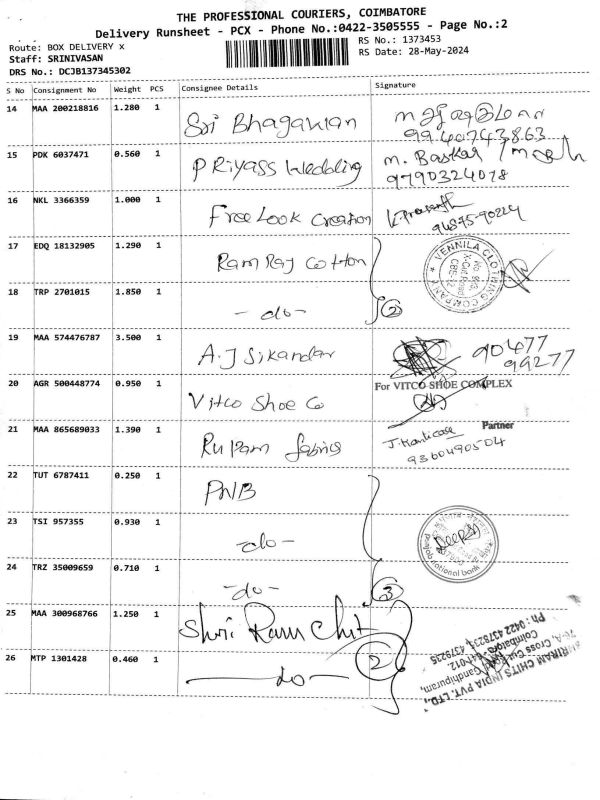 THE PROFESSIONAL COURIERS, COIMBATORE
Delivery Runsheet - PCX - Phone No.:0422-3505555 - Page No.:2
Route: BOX DELIVERY x
RS No.: 1373453
Staff: SRINIVASAN
RS Date: 28-May-2024
DRS No.: DCJB137345302
S No Consignment No Weight PCS Consignee Details Signature
14 MAA 200218816 1.280 1 Sri Bhagavian
9940743863
15 PDK 6037471 0.560 1 PRiyass Wedding M. Baskar
9790324078
16 NKL 3366359 1.000 1 Free Look Creation K. Prasanth
94875-90224
17 EDQ 18132905 1.290 1 Ram Raj Cotton VENNILA CLOTHING COMPANY
18 TRP 2701015 1.850 1 -do- 2
19 MAA 574476787 3.500 1 A.J Sikandar 90477
99277
20 AGR 500448774 0.950 1 Vitco Shoe Co For VITCO SHOE COMPLEX
Partner
21 MAA 865689033 1.390 1 Rupam fabrics
9360490504
22 TUT 6787411 0.250 1 PNB
23 TSI 957355 0.930 1 -do- punjab national bank
24 TRZ 35009659 0.710 1 -do- 3
25 MAA 300968766 1.250 1 Shri Ram Chit
26 MTP 1301428 0.460 1 -do- 2
SHRIRAM CHITS INDIA PVT. LTD.,
76-A, Cross Cut Road, Gandhipuram,
Coimbatore - 641-012.
Ph : 0422 4379231, 4379235